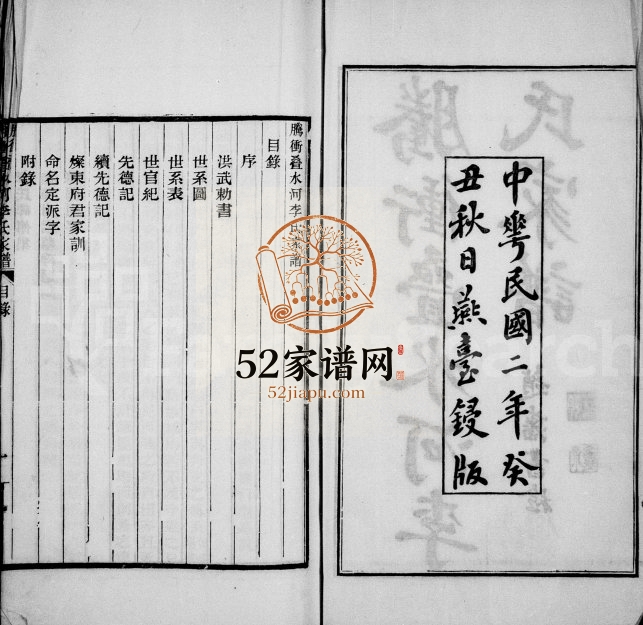 中華民國二年癸
丑秋日燕臺鋟版
騰衝疊水河李氏家譜
目錄
序
洪武勅書
世系圖
世系表
世官紀
先德記
續先德記
燦東府君家訓
命名定派字
附錄
李氏家譜
目錄
一
52家谱网
52jiapu.com